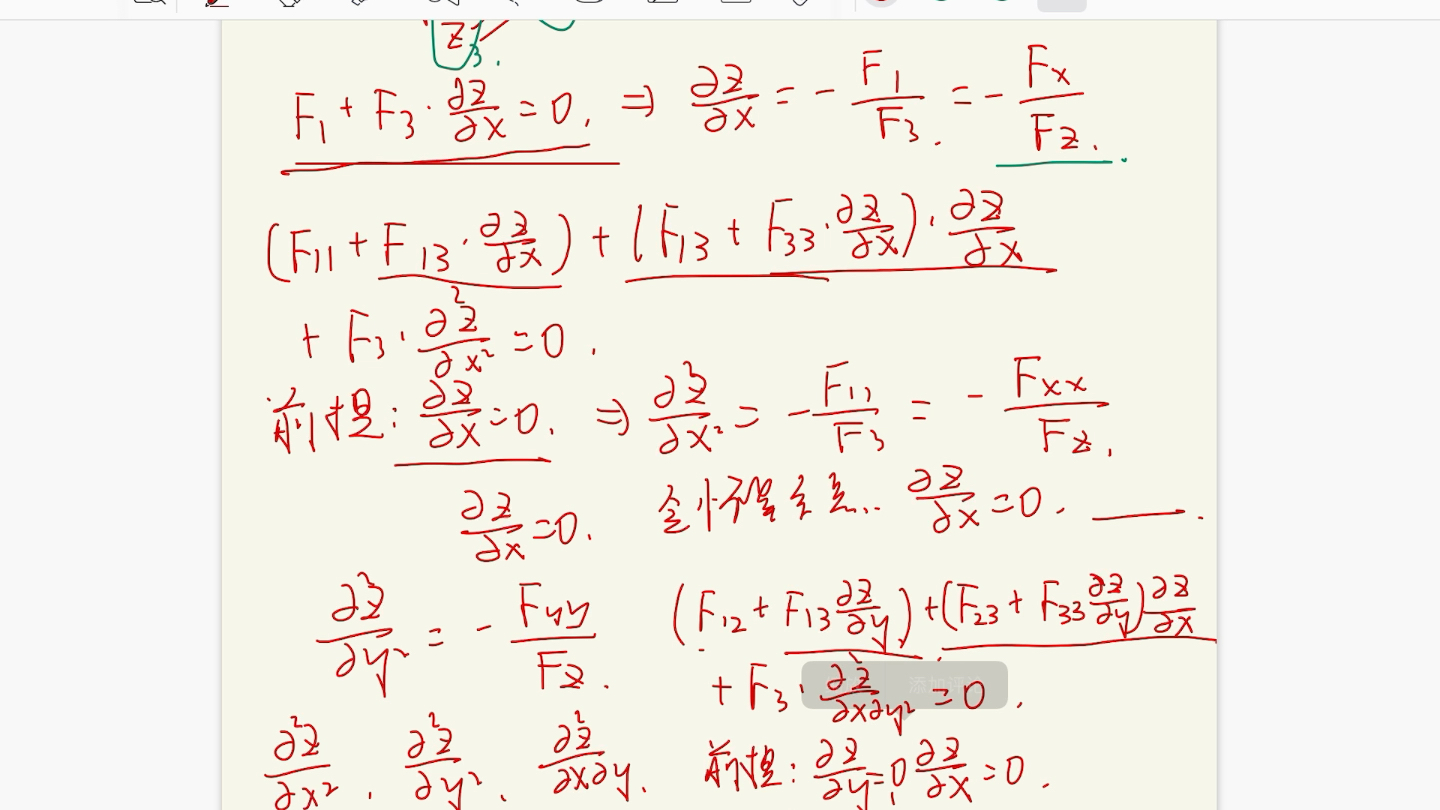 z 3.
F₁ + F₃·∂z/∂x = 0, ⇒ ∂z/∂x = - F₁/F₃. = - Fx/Fz.
(F₁₁ + F₁₃·∂z/∂x) + (F₁₃ + F₃₃·∂z/∂x)·∂z/∂x
+ F₃·∂²z/∂x² = 0.
前提: ∂z/∂x = 0. ⇒ ∂²z/∂x² = - F₁₁/F₃ = - Fxx/Fz.
∂z/∂x = 0. ∂z/∂x = 0.
∂²z/∂y² = - Fyy/Fz. (F₁₂ + F₁₃ ∂z/∂y) + (F₂₃ + F₃₃ ∂z/∂y) ∂z/∂x
+ F₃·∂²z/∂x∂y² = 0.
∂²z/∂x², ∂²z/∂y², ∂²z/∂x∂y. 前提: ∂z/∂y = 0, ∂z/∂x = 0.